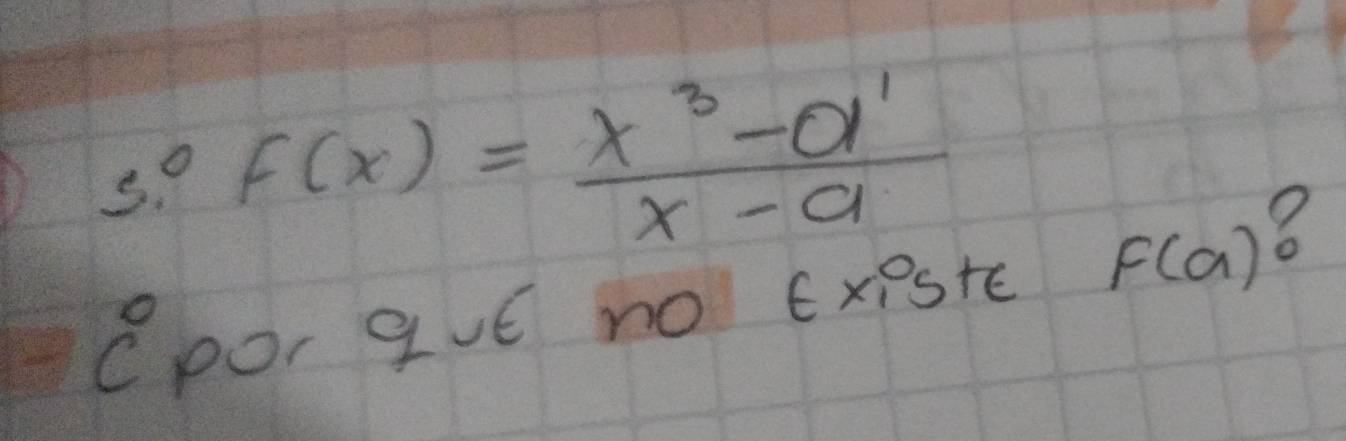 si F(x) = \frac{x^3 - a^1}{x - a}
- ¿por que no Existe F(a)?